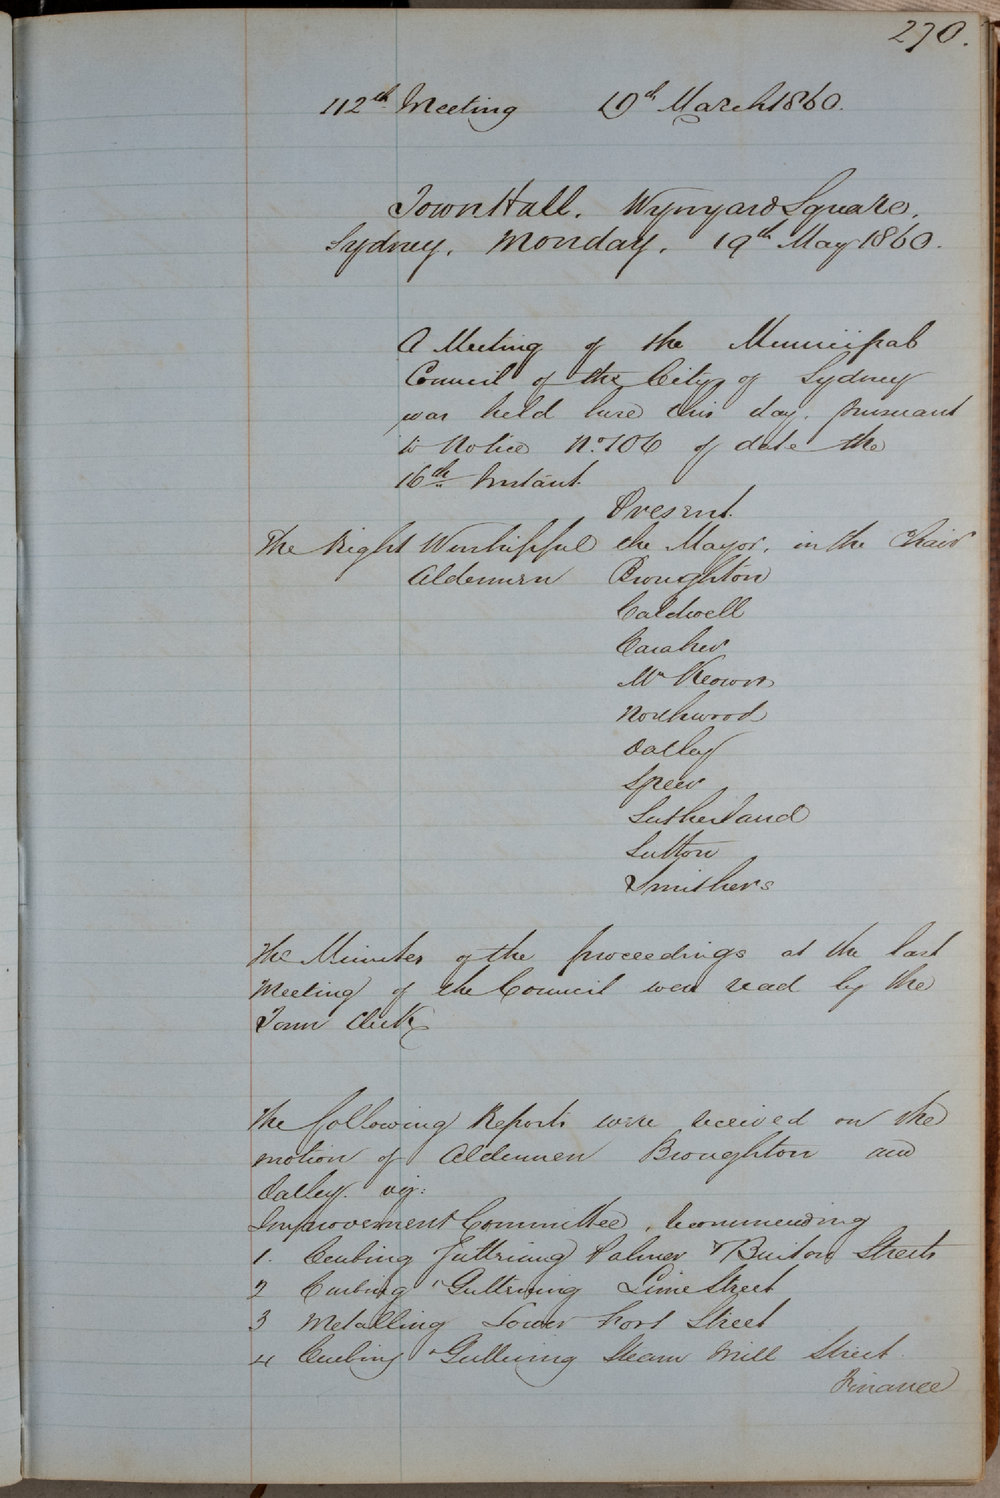 270.
112th Meeting 19th March 1860.
Town Hall. Wynyard Square.
Sydney. Monday. 19th May 1860.
A Meeting of the Municipal
Council of the City of Sydney
was held here this day. Pursuant
to Notice No. 106 of date the
16th Instant.
Present.
The Right Worshipful the Mayor, in the Chair
Aldermen Broughton
Caldwell
Caraher
McKeown
Northwood
Oatley
Speer
Sutherland
Sutton
Smithers
The Minutes of the proceedings at the last
Meeting of the Council were read by the
Town Clerk
The following Reports were received on the
motion of Aldermen Broughton and
Oatley. viz:
Improvement Committee, recommending
1. Curbing Guttering Palmer & Burton Streets
2 Curbing & Guttering Lime Street
3 Metalling Lower Fort Street
4 Curbing & Guttering Steam Mill Street.
Finance